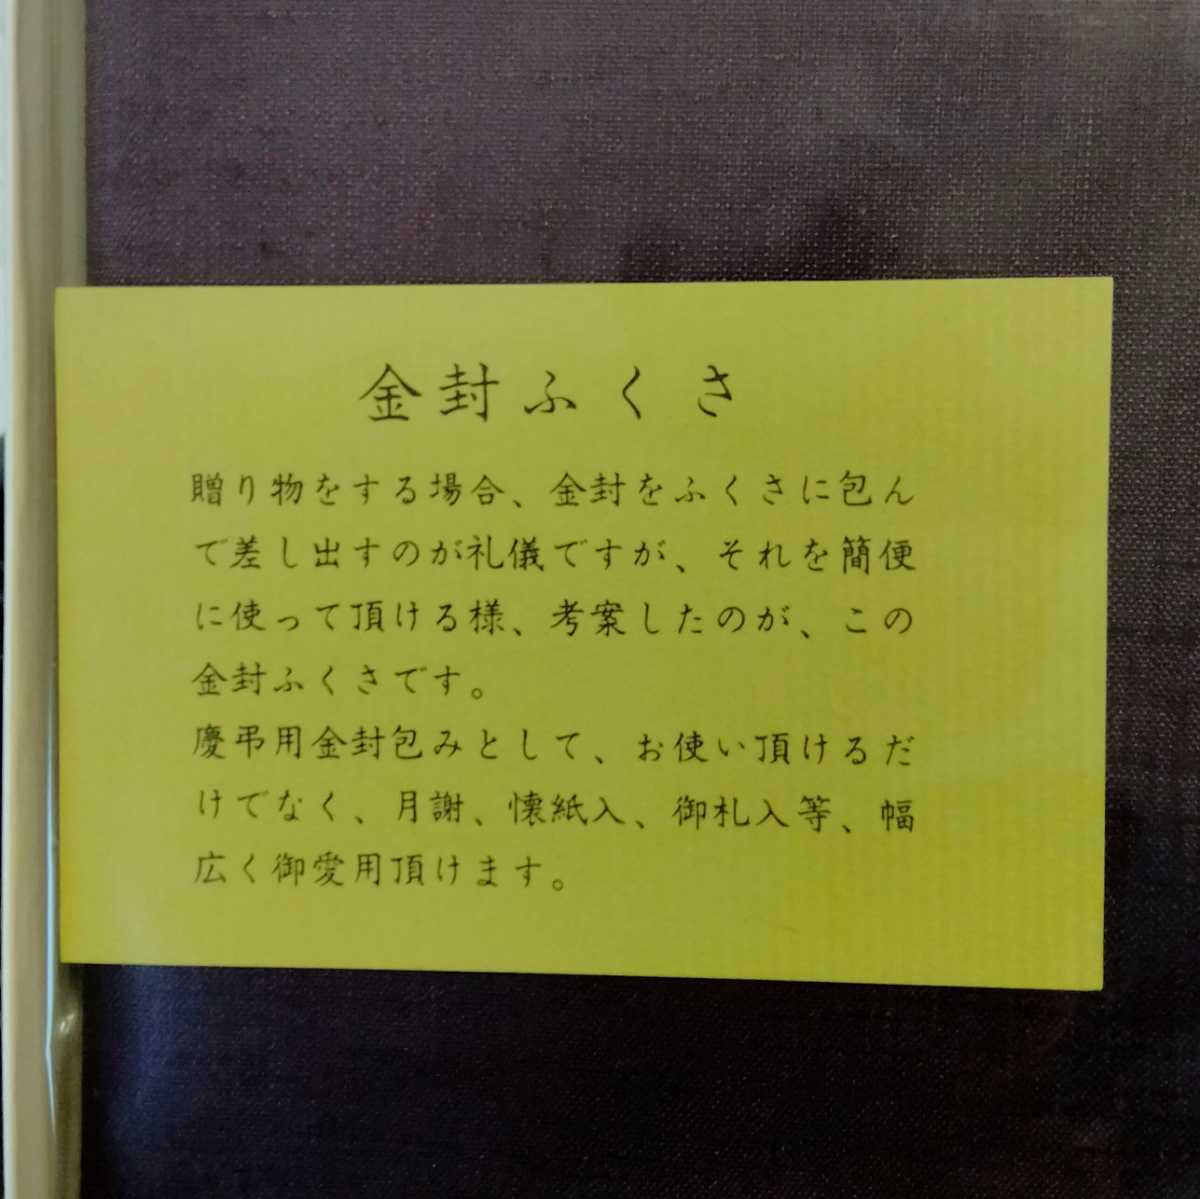 金封ふくさ
贈り物をする場合、金封をふくさに包ん
で差し出すのが礼儀ですが、それを簡便
に使って頂ける様、考案したのが、この
金封ふくさです。
慶弔用金封包みとして、お使い頂けるだ
けでなく、月謝、懐紙入、御札入等、幅
広く御愛用頂けます。